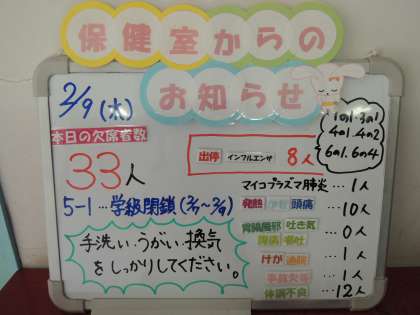 保健室からの
お知らせ
2/9(木)
本日の欠席者数
33人
5-1…学級閉鎖(2/7~2/9)
手洗い・うがい・換気
をしっかりしてください。
出停 インフルエンザ 8人
1の1・3の1
4の1・4の2
6の1・6の4
マイコプラズマ肺炎…1人
発熱 頭痛…10人
胃腸風邪 吐き気
腹痛 嘔吐…0人
けが 通院…1人
事故欠等…1人
体調不良…12人